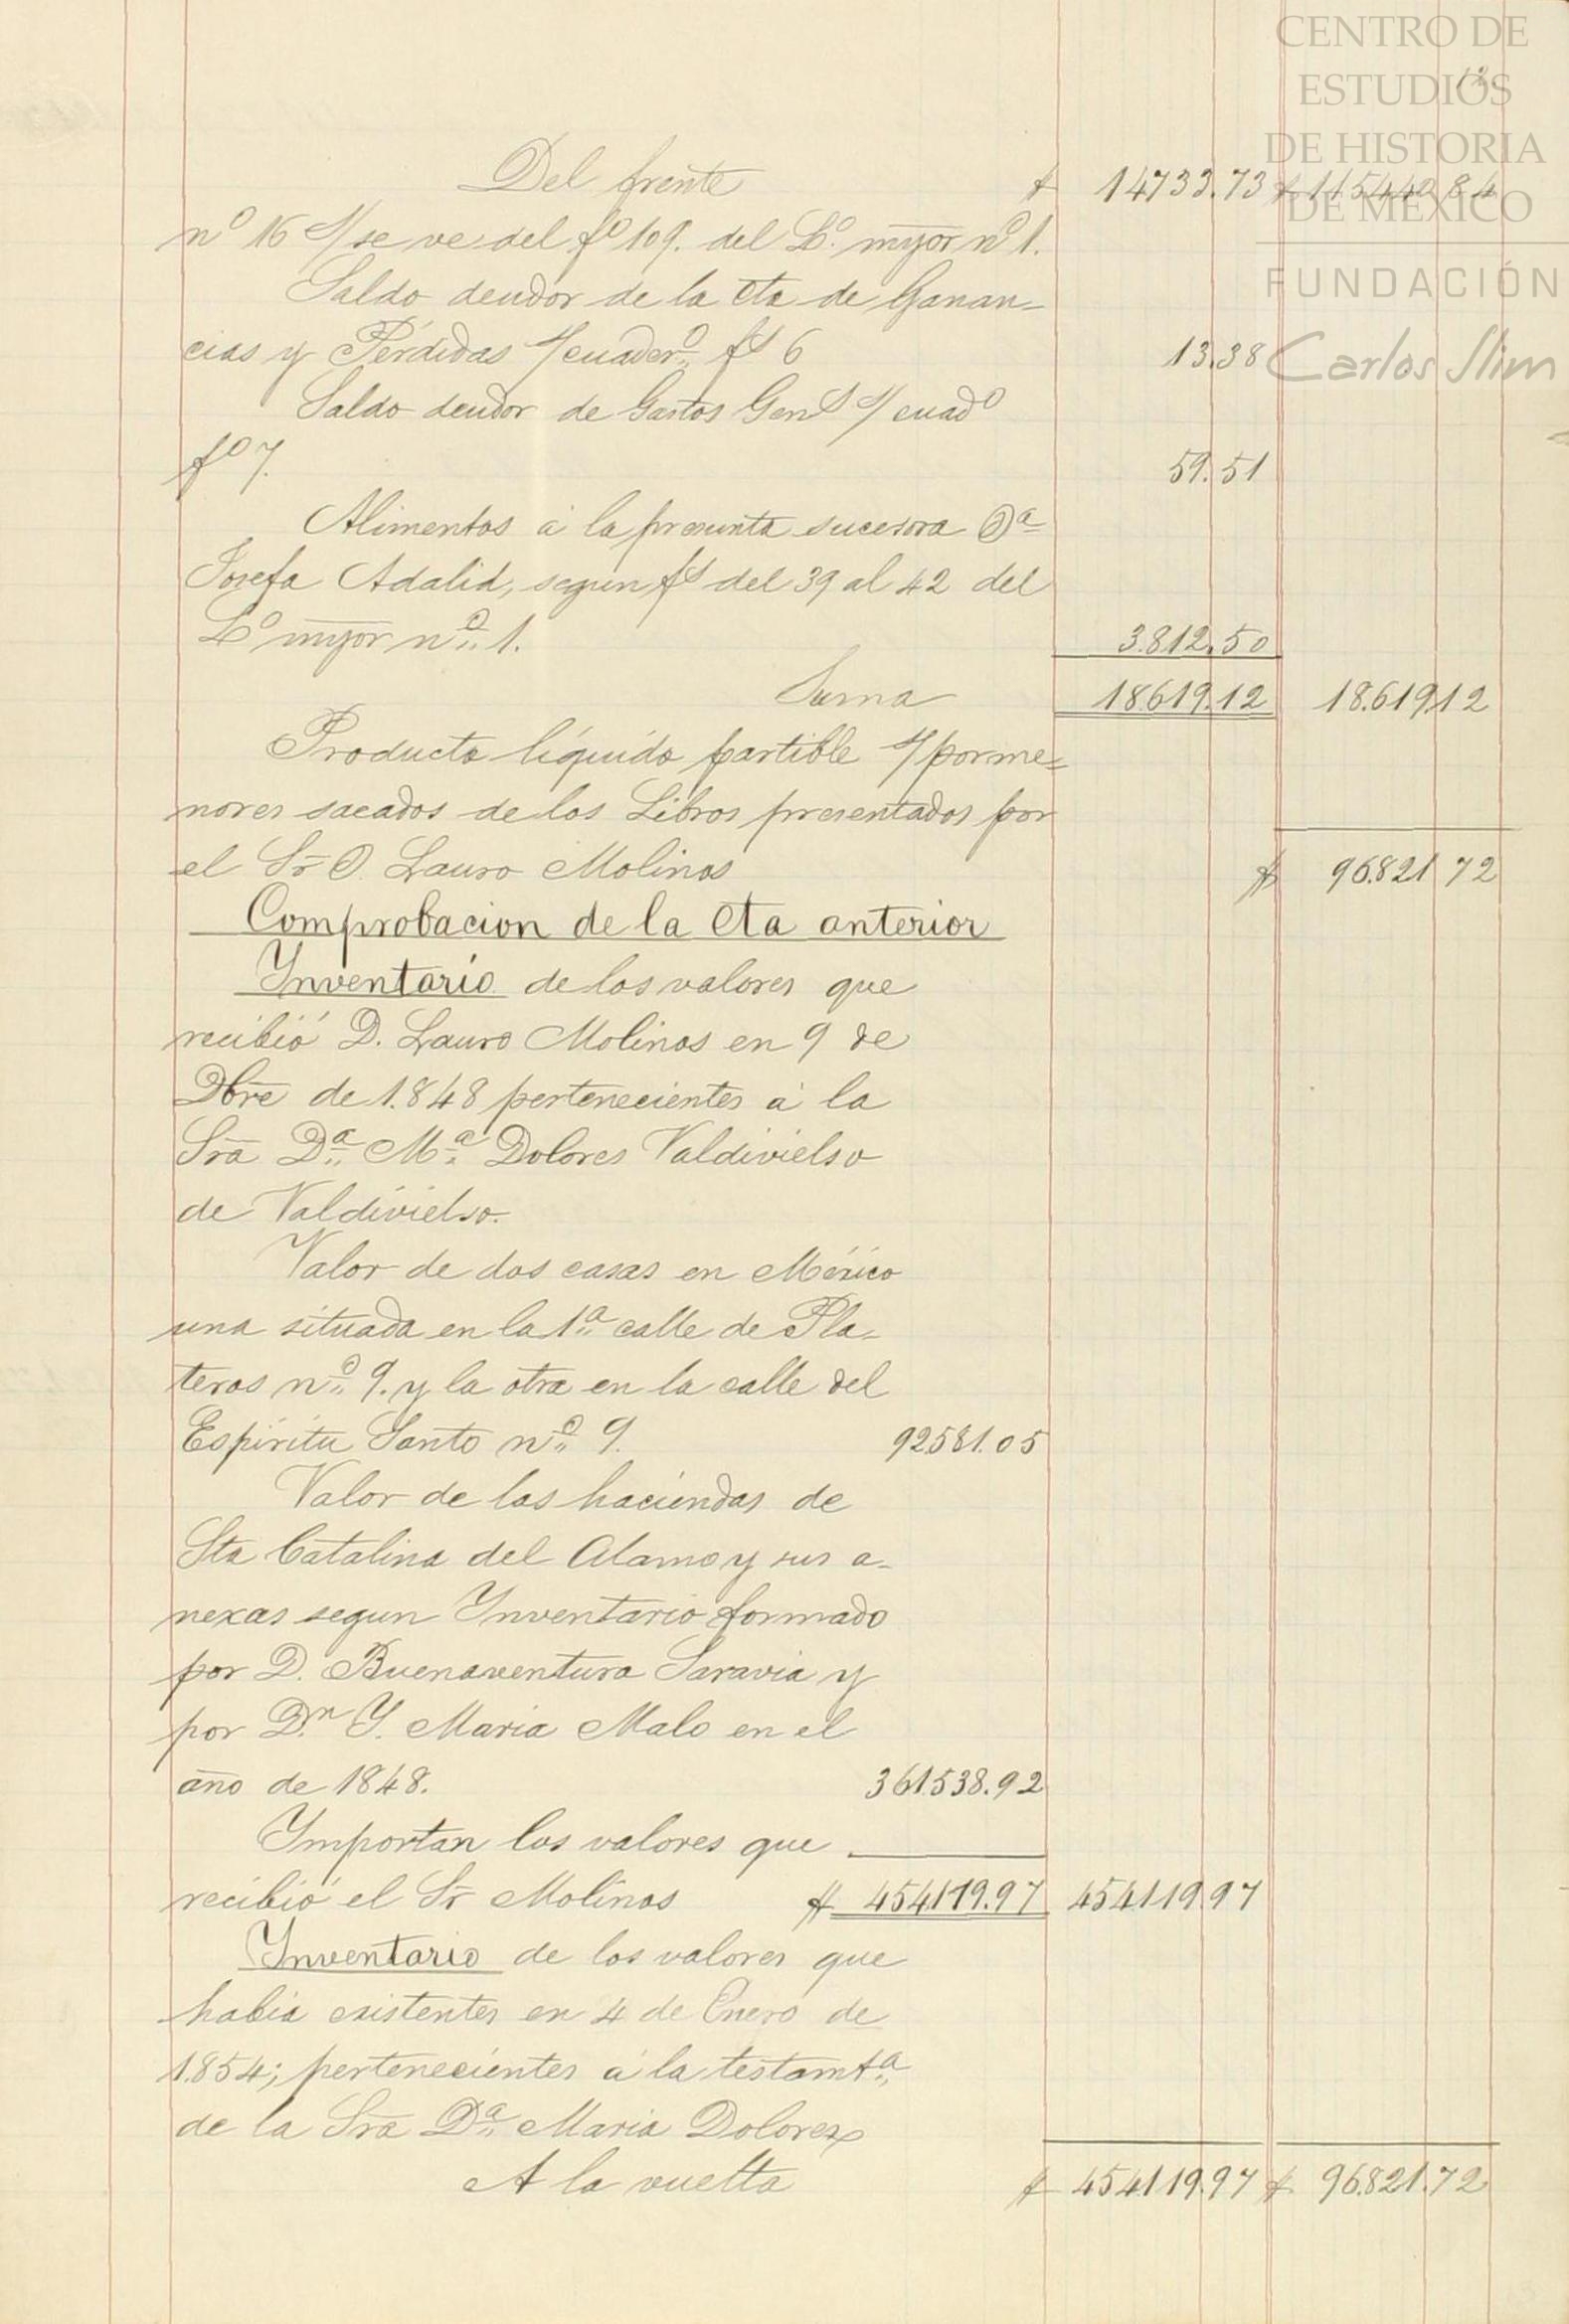 CENTRO DE
ESTUDIOS
DE HISTORIA
DE MÉXICO
FUNDACIÓN
Carlos Slim
Del frente $ 14733.73 $ 115440 84
nº 16 s/ se ve del fº 109. del Lº. myor nº 1.
Saldo deudor de la cta de Ganan-
cias y Pérdidas s/ cuadernº fs 6 13.38
Saldo deudor de Gastos Gens s/ cuadº
fº 7. 59.51
Alimentos á la presunta sucesora Dª
Josefa Adalid, segun fs del 39 al 42 del
Lº myor nº 1. 3.812.50
Suma 18619.12 18.619.12
Producto líquido partible s/ porme=
nores sacados de los Libros presentados por
el Sr D. Lauro Molinos $ 96.821 72
Comprobacion de la Cta anterior
Ynventario de los valores que
recibió D. Lauro Molinos en 9 de
Dbre de 1.848 pertenecientes á la
Sra Dª Mª Dolores Valdivielso
de Valdivielso.
Valor de dos casas en México
una situada en la 1ª calle de Pla-
teros nº 9. y la otra en la calle del
Espíritu Santo nº 9. 92581.05
Valor de las haciendas de
Sta Catalina del Alamo y sus a-
nexas segun Ynventario formado
por D. Buenaventura Saravia y
por Dn Y. Maria Malo en el
año de 1848. 361538.92
Ymportan los valores que
recibió el Sr Molinos $ 454119.97 454119.97
Ynventario de los valores que
habia existentes en 4 de Enero de
1.854; pertenecientes á la testamtª
de la Sra Dª Maria Dolores
A la vuelta $ 454119.97 $ 96.821.72